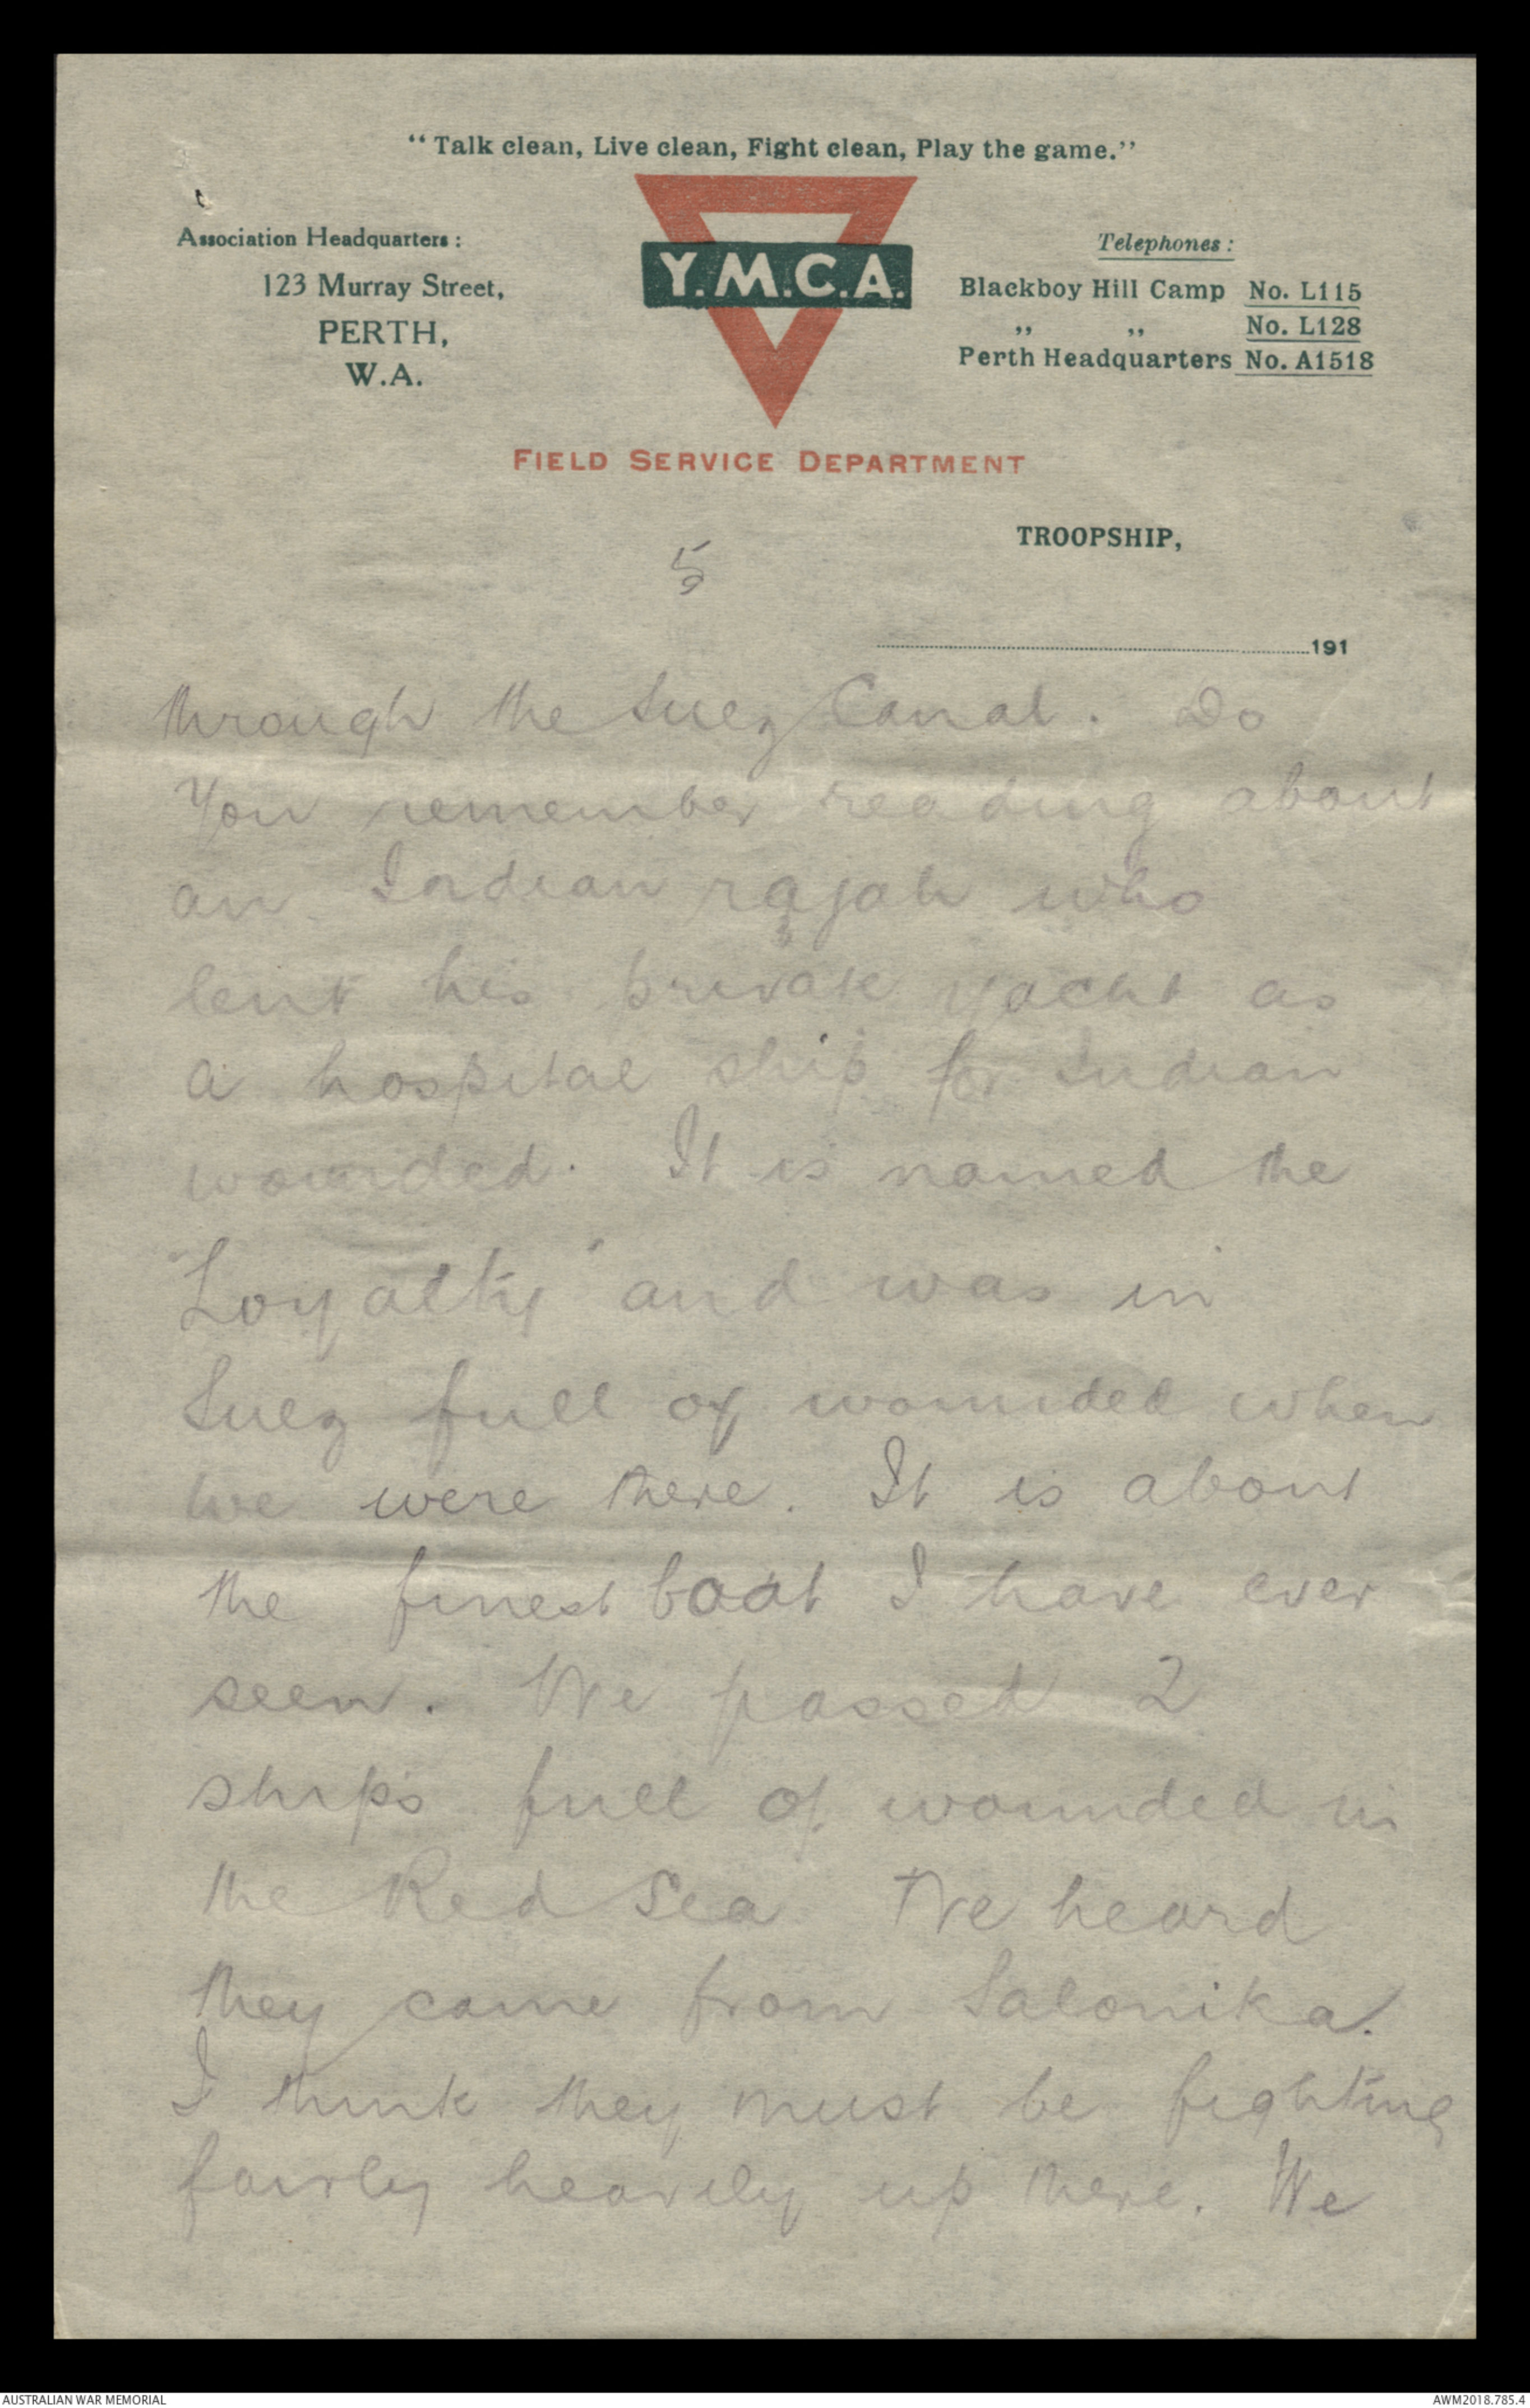 “ Talk clean, Live clean, Fight clean, Play the game.”
Association Headquarters :
123 Murray Street,
PERTH,
W.A.
Y.M.C.A.
Telephones :
Blackboy Hill Camp No. L115
„ „ No. L128
Perth Headquarters No. A1518
FIELD SERVICE DEPARTMENT
TROOPSHIP,
5
191
through the Suez Canal. Do
You remember reading about
an Indian rajah who
lent his private yacht as
a hospital ship for Indian
wounded. It is named the
"Loyalty" and was in
Suez full of wounded when
we were there. It is about
the finest boat I have ever
seen. We passed 2
ships full of wounded in
the Red Sea We heard
they came from Salonika.
I think they must be fighting
fairly heavily up there. We
AUSTRALIAN WAR MEMORIAL
AWM2018.785.4